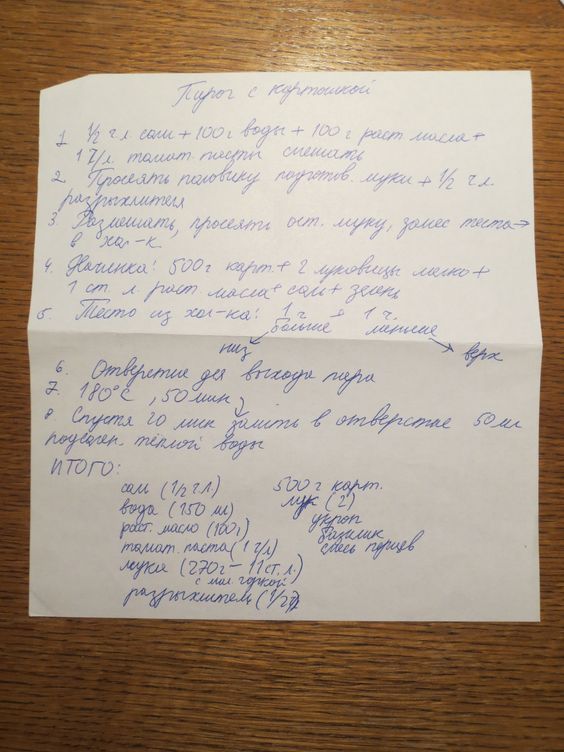 Пирог с картошкой
1. 1/2 ч л соли + 100 г воды + 100 г раст. масла +
1 ч/л. томат. пасты смешать
2. Просеять половину подготов. муки + 1/2 ч л.
разрыхлителя
3. Размешать, просеять ост. муку, замес теста →
в хол-к.
4. Начинка: 500 г карт. + 2 луковицы мелко +
1 ст. л раст. масла + соль + зелень
5. Тесто из хол-ка: 1 ч + 1 ч.
больше меньше
низ верх
6. Отверстие для выхода пара
7. 180°C, 50 мин
8. Спустя 20 мин залить в отверстие 50 мл
подсолен. тёплой воды
ИТОГО:
соль (1/2 ч л) 500 г карт.
вода (150 мл) лук (2)
раст. масло (100 г) укроп
томат. паста (1 ч/л) базилик
мука (270 г - 11 ст. л. смесь перцев
с мал. горкой)
разрыхлитель (1/2